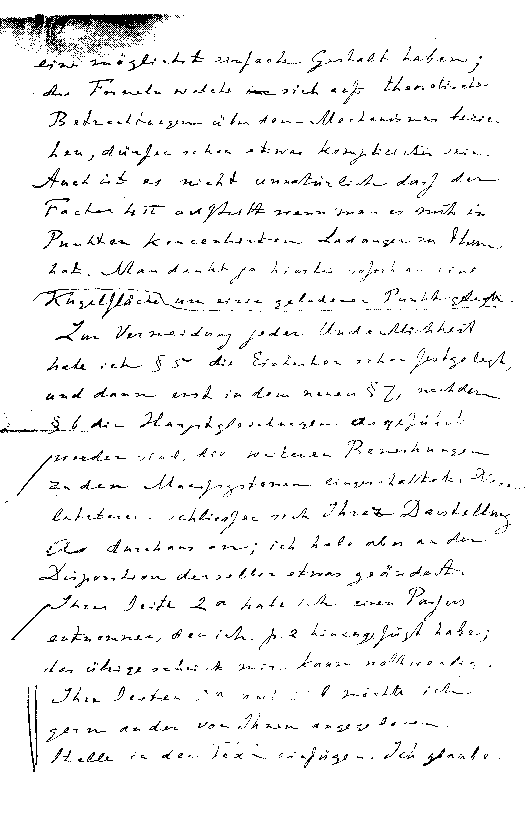 eine möglichst einfache Gestalt haben;
die Formeln welche sich auf theoretische
Betrachtungen über den Mechanismus bezie-
hen, dürfen schon etwas komplicirter sein.
Auch ist es nicht unnatürlich dass der
Factor 4π auftritt wenn man es mit in
Punkten koncentrirten Ladungen zu thun
hat. Man denkt ja hierbei sofort an eine
Kugelfläche um einen geladenen Punkt gelegt.
Zur Vermeidung jeder Undeutlichkeit
habe ich § 5 die Einheiten schon festgelegt,
und dann erst in dem neuen § 7, nachdem
§ 6 die Hauptgleichungen angeführt
worden sind, die weiteren Bemerkungen
zu den Maasssystemen eingeschaltet. Diese
letzteren schliessen sich Ihrer Darstellung
durchaus an; ich habe aber an der
Disposition derselben etwas geändert.
Ihrer Seite 2a habe ich einen Passus
entnommen, den ich p. 2 hinzugefügt habe;
das übrige scheint mir kaum nothwendig.
Ihre Seiten und möchte ich
gern an der von Ihnen angegebenen
Stelle in den Text einfügen. Ich glaube